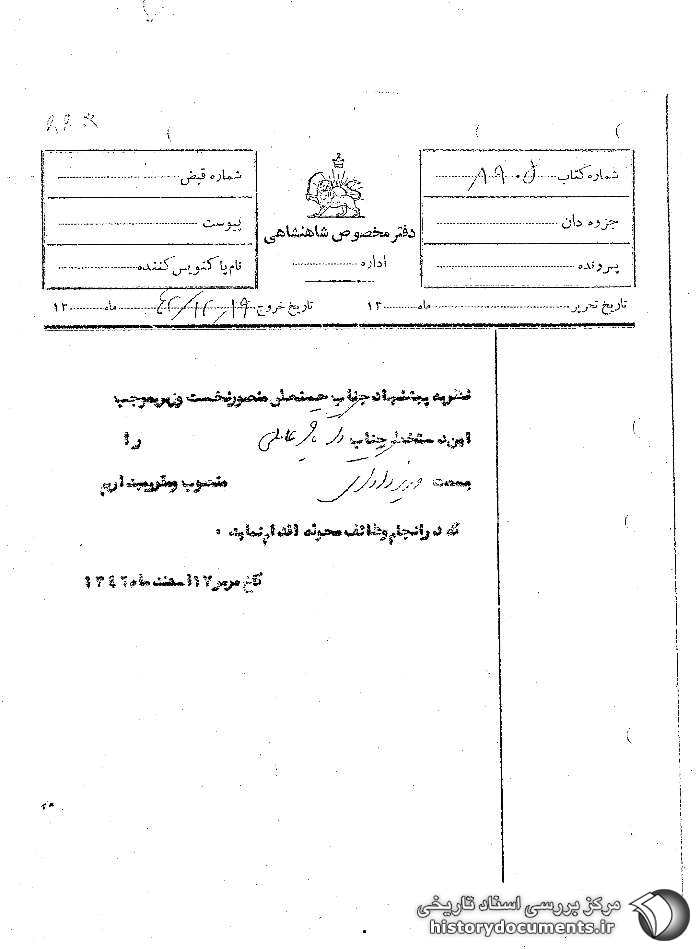 شماره کتاب ۸۹۰۵
جزوه دان
پرونده
دفتر مخصوص شاهنشاهی
اداره
شماره قبض
پیوست
نام پاکنویس کننده
تاریخ تحریر ماه ۱۳
تاریخ خروج ۴۲/۱۲/۱۹ ماه ۱۳
نظر به پیشنهاد جناب حسنعلی منصور نخست وزیر بموجب
این دستخط جناب باقر عاملی را
بسمت وزیر دادگستری منصوب و مقرر میداریم
که در انجام وظائف محوله اقدام نماید .
کاخ مرمر ۱۷ اسفند ماه ۱۳۴۲
مرکز بررسی اسناد تاریخی
historydocuments.ir